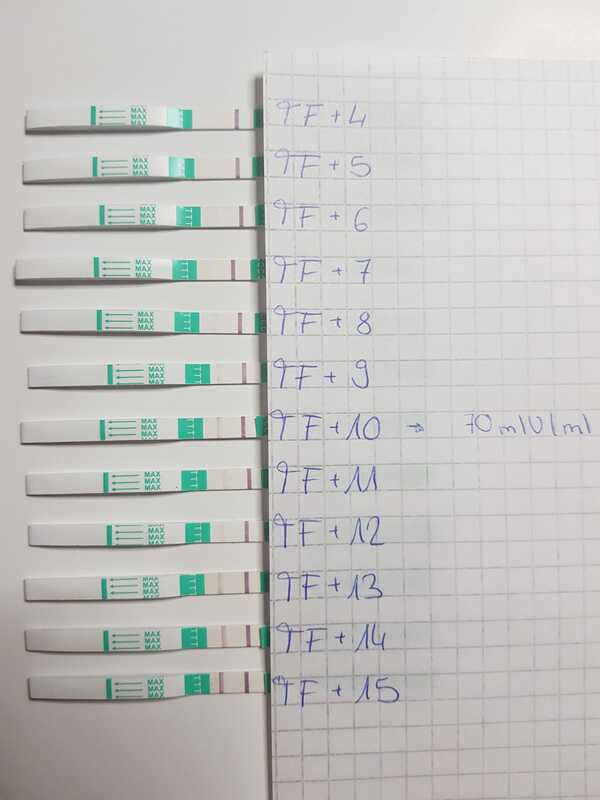 MAX
MAX
MAX
TF + 4
MAX
MAX
MAX
TF + 5
MAX
MAX
MAX
TF + 6
MAX
MAX
MAX
TF + 7
MAX
MAX
MAX
TF + 8
MAX
MAX
MAX
TF + 9
MAX
MAX
MAX
TF + 10 → 70 mlU/ml
MAX
MAX
MAX
TF + 11
MAX
MAX
MAX
TF + 12
MAX
MAX
MAX
TF + 13
MAX
MAX
MAX
TF + 14
MAX
MAX
MAX
TF + 15